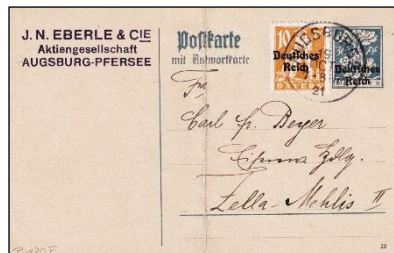 J. N. EBERLE & CIE
Aktiengesellschaft
AUGSBURG-PFERSEE
Postkarte
mit Antwortkarte
10
Deutsches
Reich
BAYERN
Deutsches
Reich
AUGSBURG
21
Carl Fr. Beyer
Zella-Mehlis II